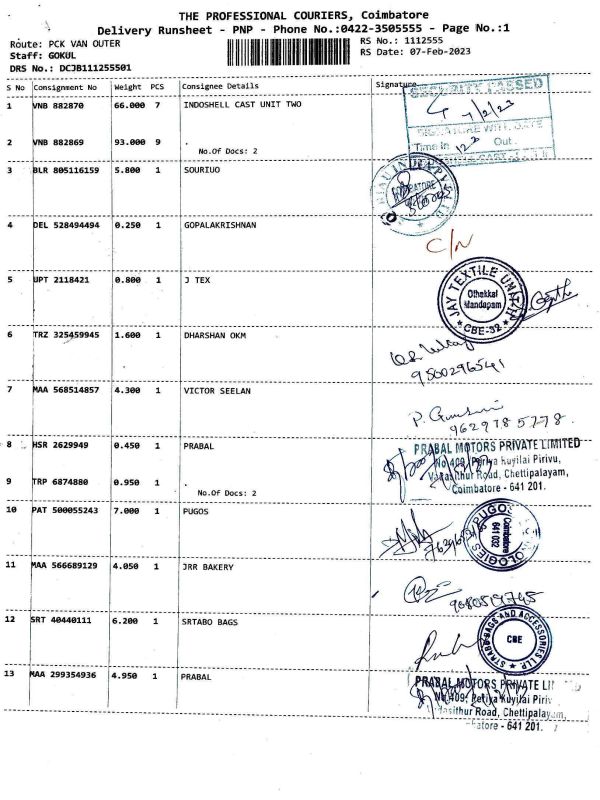 THE PROFESSIONAL COURIERS, Coimbatore
Delivery Runsheet - PNP - Phone No.:0422-3505555 - Page No.:1
Route: PCK VAN OUTER
RS No.: 1112555
Staff: GOKUL
RS Date: 07-Feb-2023
DRS No.: DCJB111255501
S No Consignment No Weight PCS Consignee Details Signature
SECURITY PASSED
1 VNB 882870 66.000 7 INDOSHELL CAST UNIT TWO
7/2/23
SIGNATURE WITH DATE
2 VNB 882869 93.000 9 .
Time in Out
No.Of Docs: 2
3 BLR 805116159 5.800 1 SOURIUO
4 DEL 528494494 0.250 1 GOPALAKRISHNAN
C/N
5 UPT 2118421 0.800 1 J TEX
JAY TEXTILE
Othakkal
Mandapam
CBE-32
6 TRZ 325459945 1.600 1 DHARSHAN OKM
9500296541
7 MAA 568514857 4.300 1 VICTOR SEELAN
9629785778
8 HSR 2629949 0.450 1 PRABAL
PRABAL MOTORS PRIVATE LIMITED
No.409, Periya Kuyilai Pirivu,
Road, Chettipalayam,
Coimbatore - 641 201.
9 TRP 6874880 0.950 1 .
No.Of Docs: 2
10 PAT 500055243 7.000 1 PUGOS
PUGOS
Coimbatore
641 032
11 MAA 566689129 4.050 1 JRR BAKERY
12 SRT 40440111 6.200 1 SRTABO BAGS
BAGS AND ACCESSORIES LLP
CBE
13 MAA 299354936 4.950 1 PRABAL
PRABAL MOTORS PRIVATE
No.409, Periya Kuyilai Piriv
Road, Chettipalayam,
- 641 201.